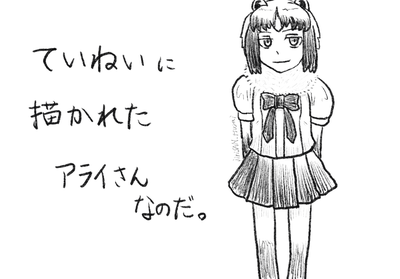 ていねいに
描かれた
アライさん
なのだ。